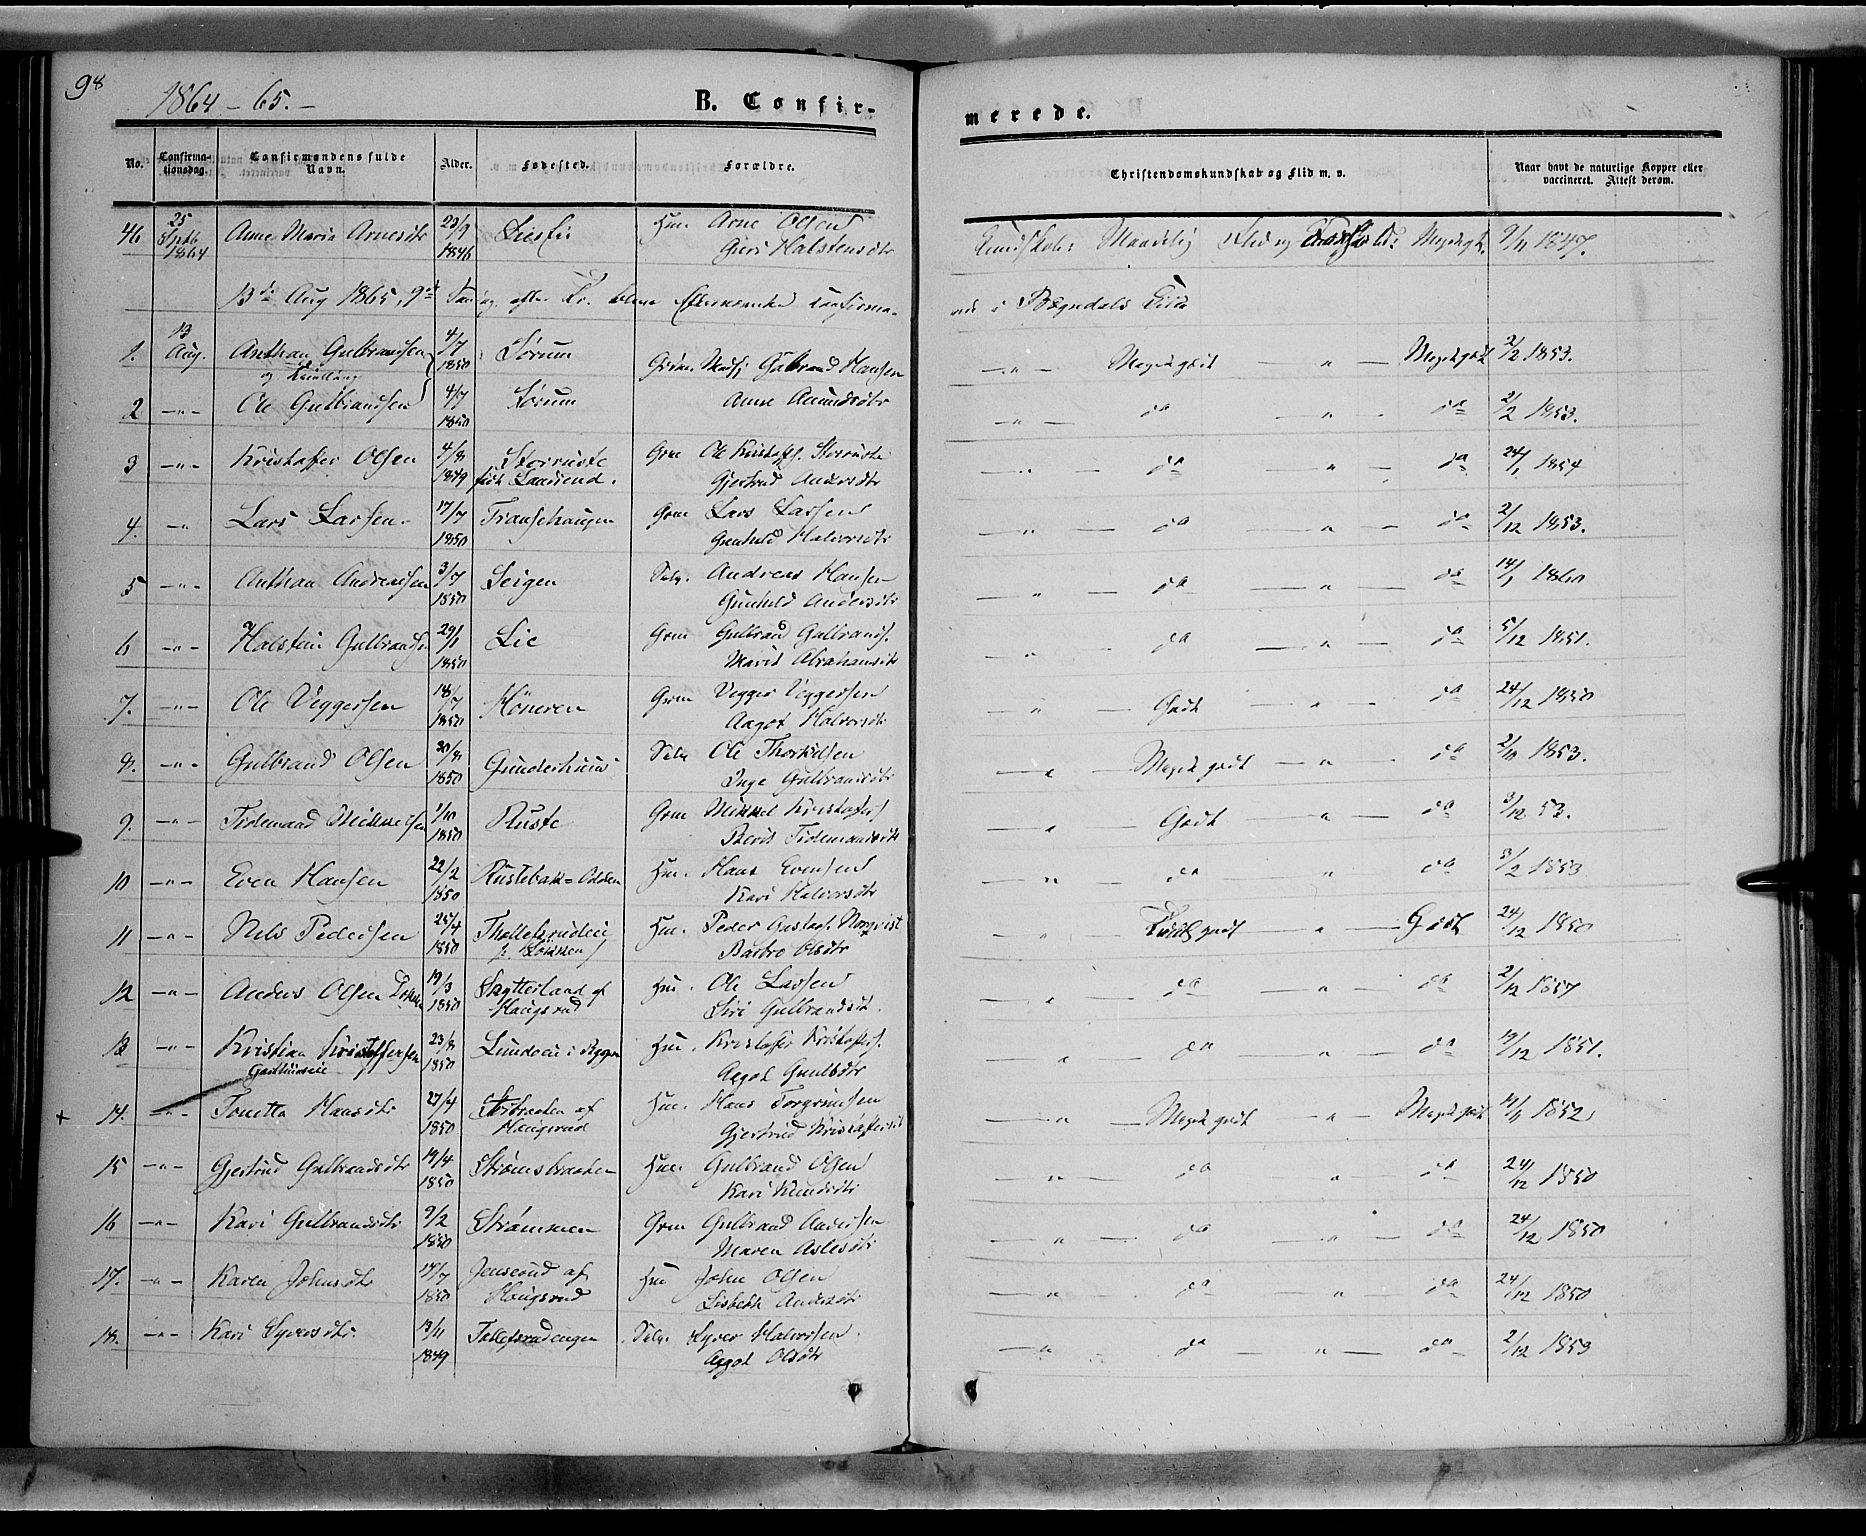 98
1864 - 65. -
B. Confir-
merede.
No.
Confirma-
tionsdag.
Confirmandens fulde
Navn.
Alder.
Fødested.
Forældre.
Christendomskundskab og Flid m. v.
Naar havt de naturlige Kopper eller
vaccineret. Attest derom.
46 25 Septb 1864 Anne Maria Arnesdtr 1846 Hm. Arne Olsen
Guri Halstensdtr
Kundskab: Maadelig Flid og Meget g. 9/11 1847.
13de Aug 1865, 9de Søndag efter Tr. bleve Efternævnte confirme-
rede i Bægndals Kirke
1. 13 Aug. Anthon Gulbrandsen 4/7 1850 Sørum Gulbrand Hansen
og Tvilling
Meget godt - " - Meget godt 2/2 1853.
2 -"- Ole Gulbrandsen 4/7 1850 Sørum Anne Amundsdtr
-"- do " do 2/2 1853.
3 -"- Kristoffer Olsen 4/8 1849 Storruste Grm Ole Kristoffs. Storruste
født Gjertrud Andersdtr
-"- do " do 24/1 1854
4. -"- Lars Larsen 17/7 1850 Fransehaugen Grm Lars Larsen
Gunhild Halvorsdtr
-"- do " do 2/12 1853.
5 -"- Anthon Andreassen 3/7 1850 Leigen Selv. Andreas Hansen
Gunhild Andersdtr
-"- do " do 14/1 1860
6 -"- Halstein Gulbrandsen 29/1 1850 Lie Grm Gulbrand Gulbrands.
Marit Abrahamsdtr
-"- do " do 5/12 1851.
7. -"- Ole Veggersen 18/7 1850 Høneren Grm Vegger Veggersen
Aagot Halvorsdtr
-"- Godt " do 24/12 1850
8. -"- Gulbrand Olsen 30/8 1850 Gunderhuus Selv Ole Thorkilsen
Inge Gulbrandsdtr
-"- Meget godt - " - do 1853.
9. -"- Tidemand Mikkelsen 1/10 1850 Ruste Grm Mikkel Kristoffers
Berit Tidemandsdtr
-"- Godt - " - do 3/12 53.
10 -"- Even Hansen 22/2 1850 Rustebak=Odden Hm. Hans Evensen
Kari Halvorsdtr
-"- do " do 3/2 1853
11 -"- Nels Pedersen 25/4 1850 Thollefsrudeie Hm. Peder Gustafs. Norqvist
Barbro Olsdtr
-"- godt " Godt 24/12 1850
12 -"- Anders Olsen 19/3 1850 Skytterland af Hm. Ole Larsen
Haugsrud Siri Gulbrandsdt.
-"- do " do 2/12 1857
13 -"- Kristian Kristoffersen 23/8 1850 Lundeie i Hm. Kristoffer Kristoffers.
Aagot Gunulsdtr
-"- do " do 19/12 1851.
+ 14. -"- Tonetta Hansdtr 27/4 1850 af Hm. Hans Torgrimsen
Haugsrud Gjertrud Kristoffersdt
-"- Meget godt - " - Meget godt 1852
15 -"- Gjertrud Gulbrandsdtr 19/4 1850 Strømsbraaten Hm. Gulbrand Olsen
Kari Knudsdtr
-"- do " do 24/12 1850
16 -"- Kari Gulbrandsdtr 9/2 1850 Strømmen Grm Gulbrand Andersen
Maren Aslesdtr
-"- do " do 24/12 1850
17. -"- Karen Johnsdtr 17/7 1850 Jensrud af Hm John Olsen
Haugsrud Lisbeth Andersdtr
-"- do " do 24/12 1850
18. -"- Kari Syversdtr. 13/11 1849 Tollefsrudengen Selv. Syver Halvorsen.
Aagot Olsdtr
-"- do - " - do - 2/12 1853